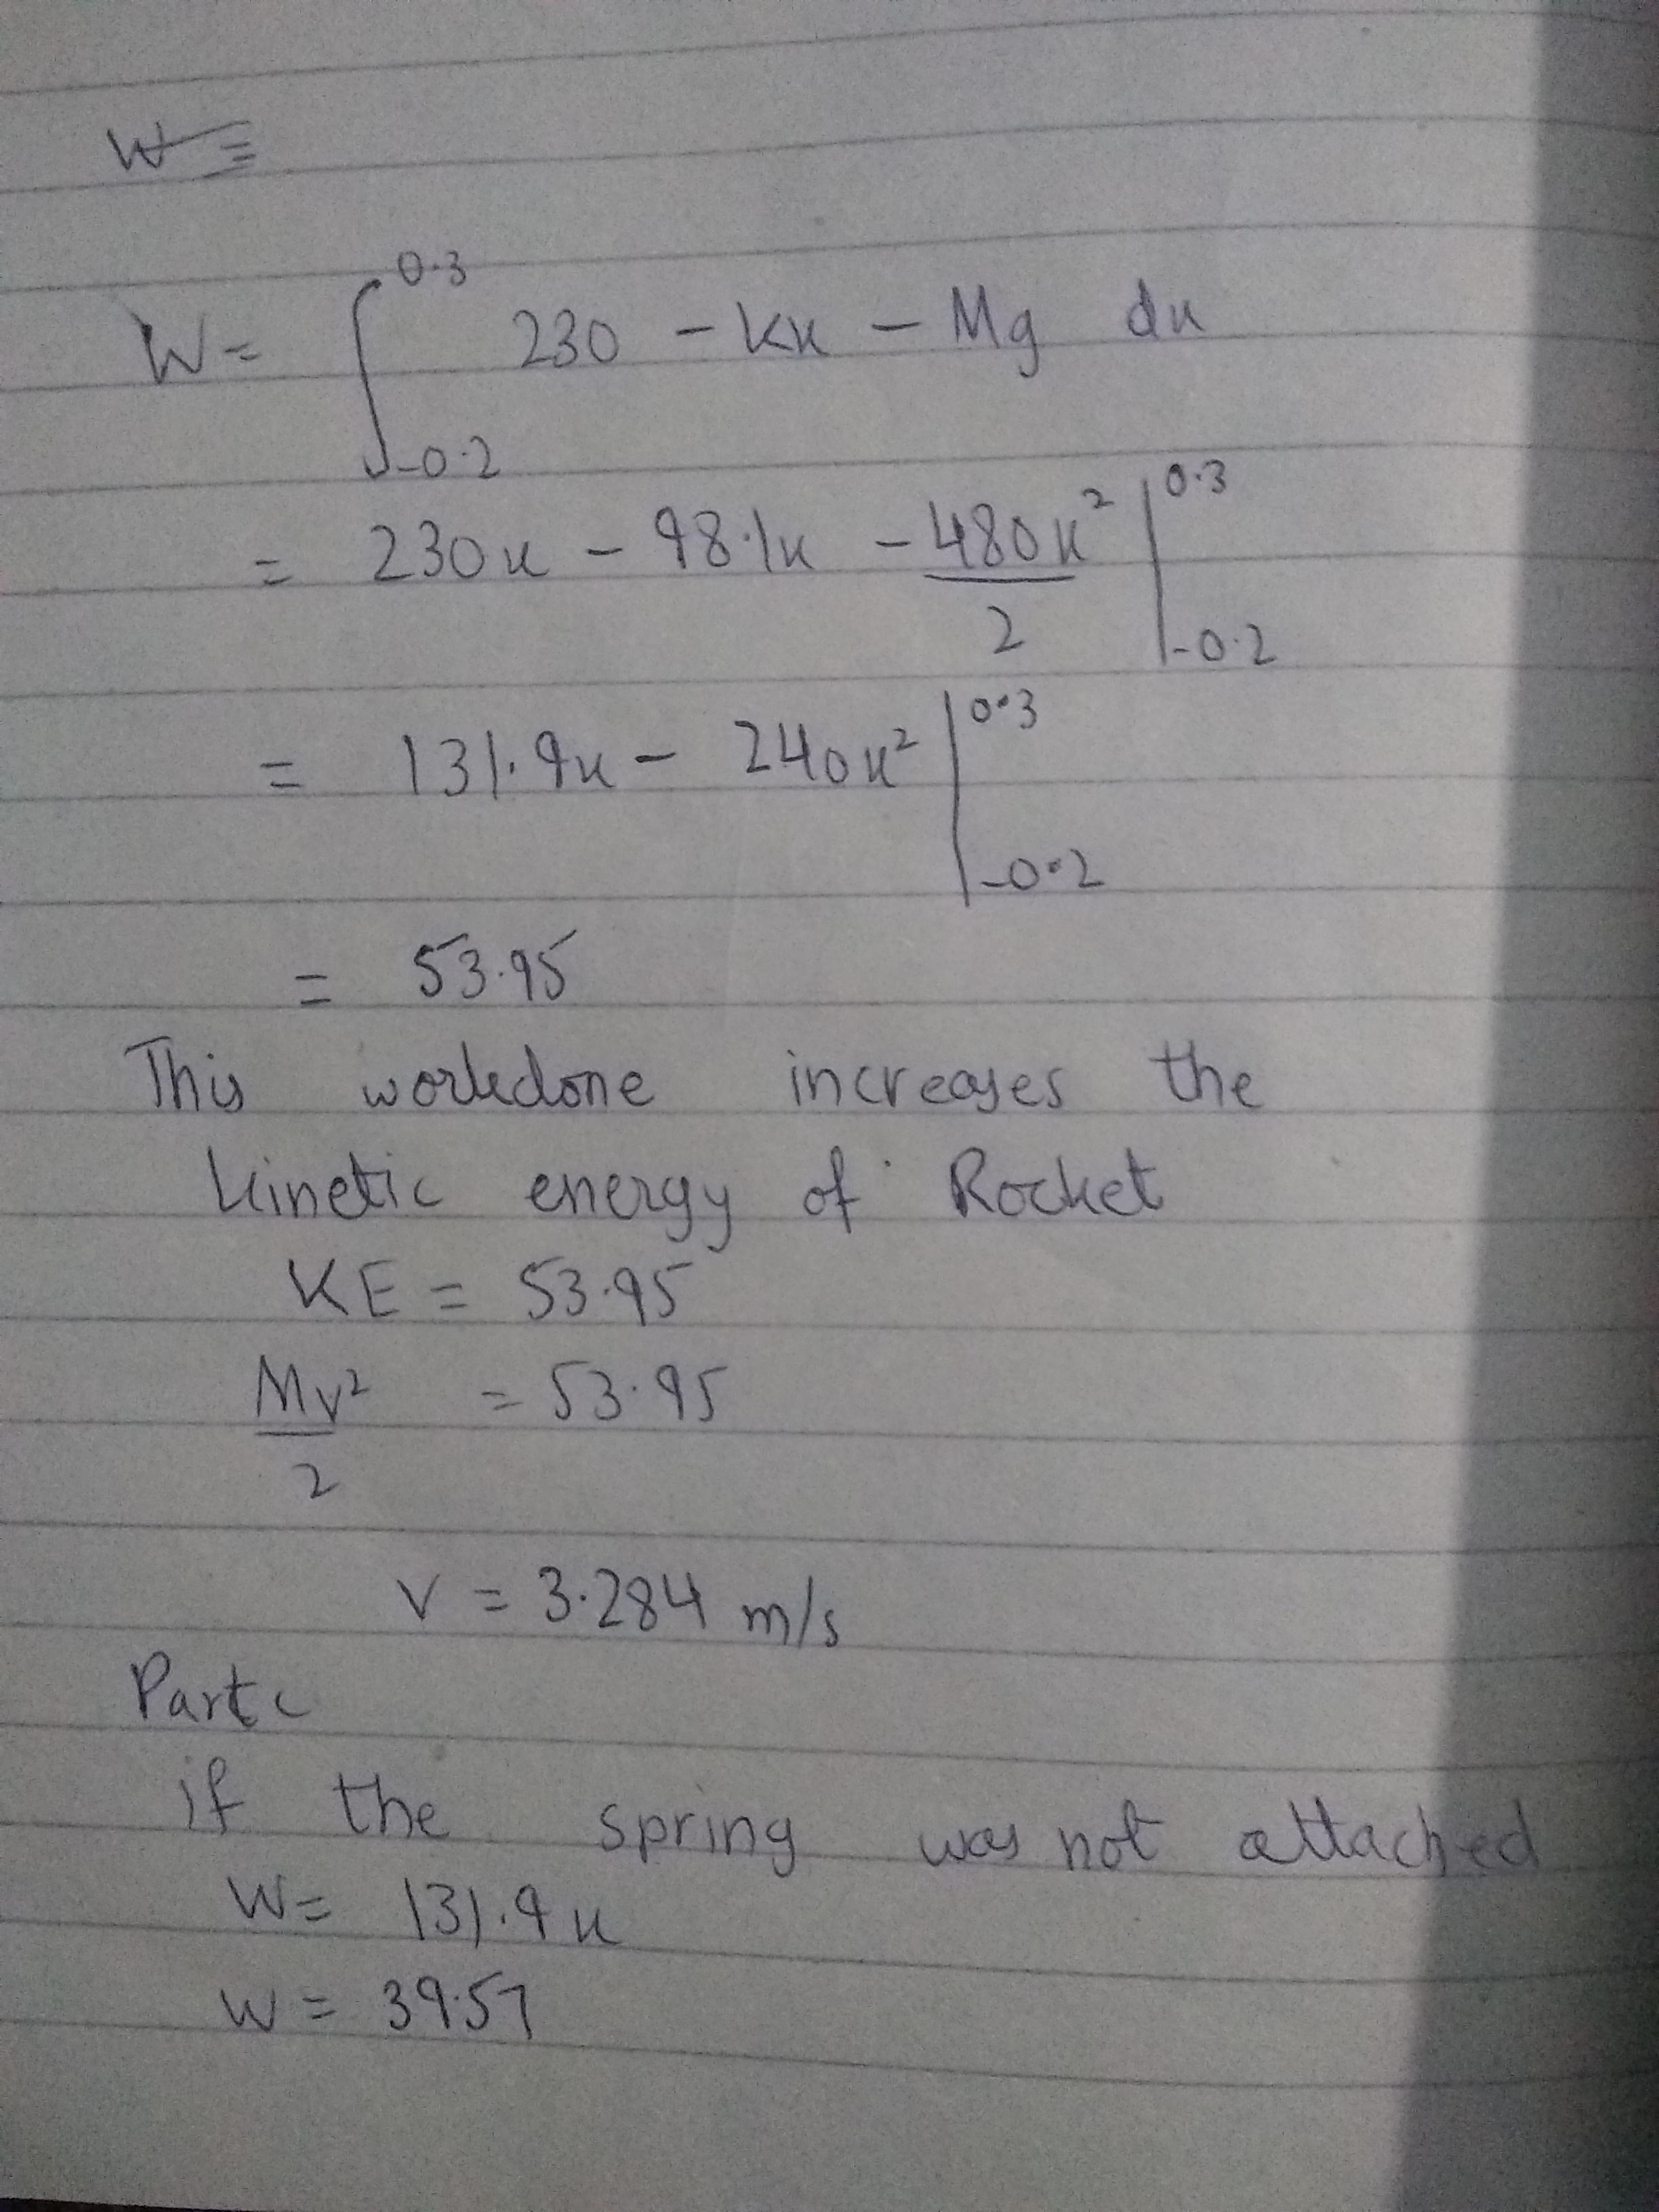 W=
W = ∫_{-0.2}^{0.3} 230 - kx - Mg dx
= 230x - 98.1x - 480x²/2 |_{-0.2}^{0.3}
= 131.9x - 240x² |_{-0.2}^{0.3}
= 53.95
This workdone increases the
kinetic energy of Rocket
KE = 53.95
Mv²/2 = 53.95
v = 3.284 m/s
Part c
if the spring was not attached
W = 131.9x
W = 39.57